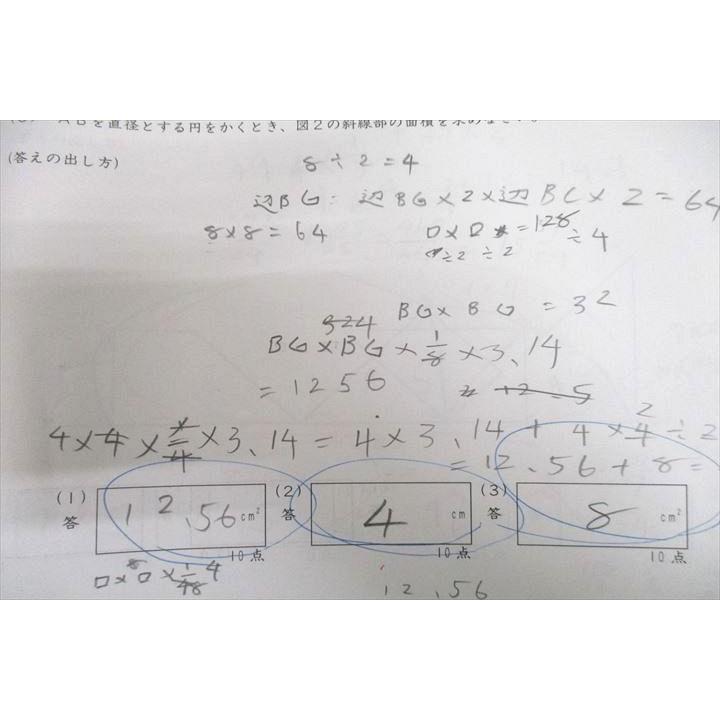 ABを直径とする円をかくとき、図2の斜線部の面積を求めなさい。
(答えの出し方)
8÷2=4
辺BG: 辺BG×2×辺BC×2=64
8×8=64
□×□=128÷4
÷2 ÷2
BG×BG =32
324
BG×BG×1/8×3.14
=1256
12=5
4×4×1/4×3.14=4×3.14+4×4÷2
2
=12.56+8=
(1) (2) (3)
答 12.56 cm² 答 4 cm 答 8 cm²
10点 10点 10点
12.56